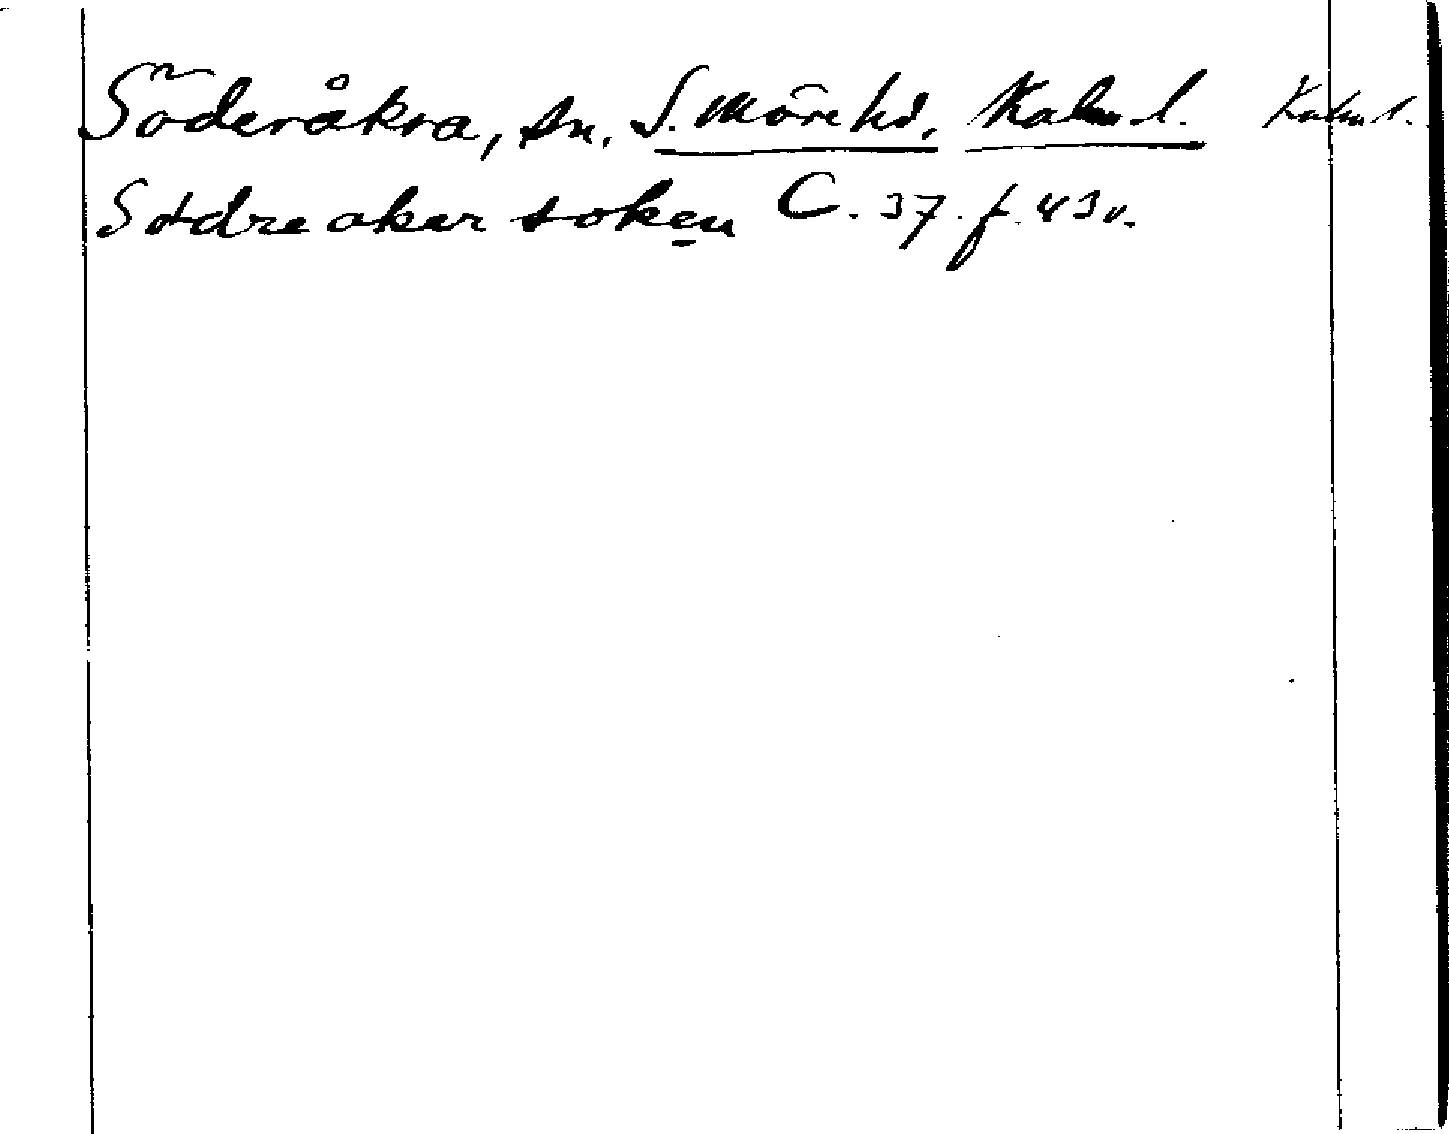 Söderåkra, sn. S. Möre hd. Kalm. l. Kalm l.
Sødre aker soken C. 37. f. 43 v.